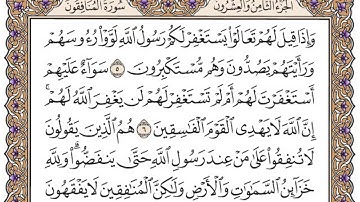 الجزء الثامن والعشرون سورة المنافقون
وَإِذَا قِيلَ لَهُمْ تَعَالَوْا۟ يَسْتَغْفِرْ لَكُمْ رَسُولُ ٱللَّهِ لَوَّوْا۟ رُءُوسَهُمْ
وَرَأَيْتَهُمْ يَصُدُّونَ وَهُم مُّسْتَكْبِرُونَ ٥ سَوَآءٌ عَلَيْهِمْ
أَسْتَغْفَرْتَ لَهُمْ أَمْ لَمْ تَسْتَغْفِرْ لَهُمْ لَن يَغْفِرَ ٱللَّهُ لَهُمْ ۚ
إِنَّ ٱللَّهَ لَا يَهْدِى ٱلْقَوْمَ ٱلْفَٰسِقِينَ ٦ هُمُ ٱلَّذِينَ يَقُولُونَ
لَا تُنفِقُوا۟ عَلَىٰ مَنْ عِندَ رَسُولِ ٱللَّهِ حَتَّىٰ يَنفَضُّوا۟ ۗ وَلِلَّهِ
خَزَآئِنُ ٱلسَّمَٰوَٰتِ وَٱلْأَرْضِ وَلَٰكِنَّ ٱلْمُنَٰفِقِينَ لَا يَفْقَهُونَ